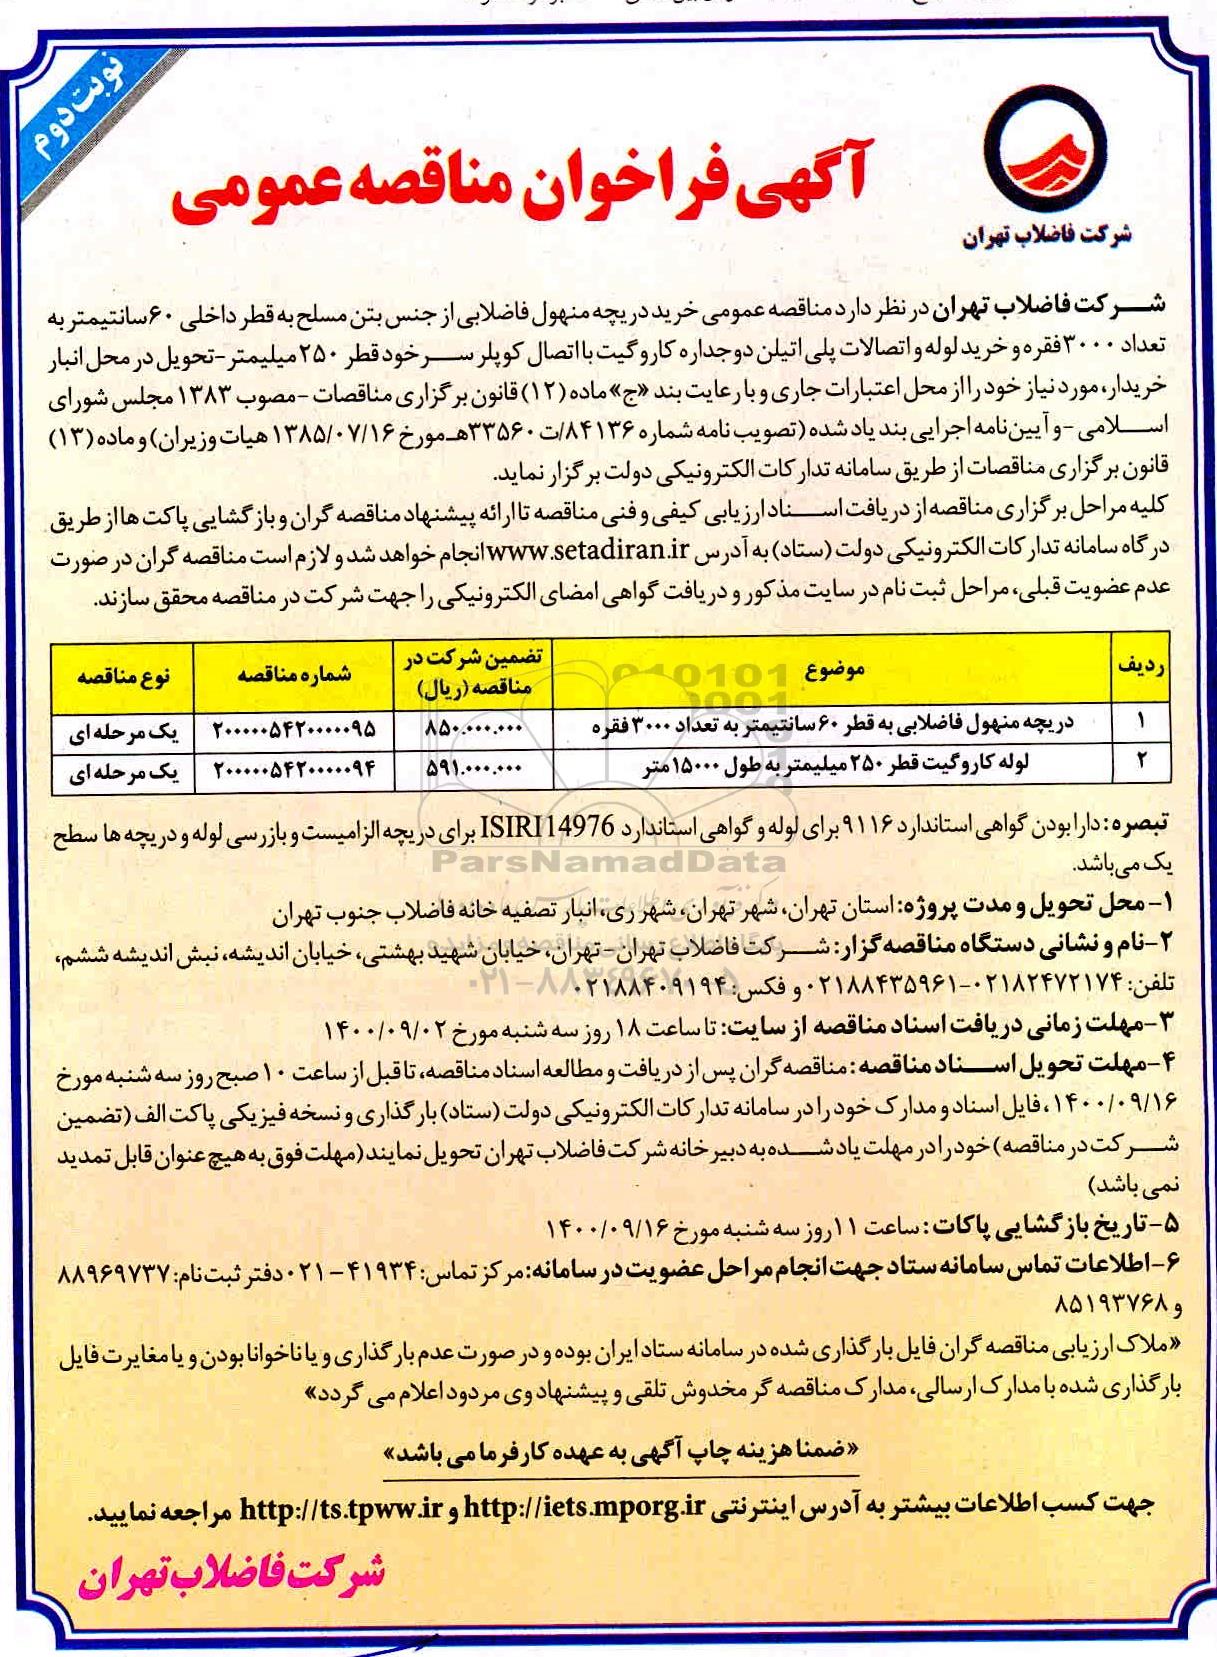 نوبت دوم
شرکت فاضلاب تهران
آگهی فراخوان مناقصه عمومی
شرکت فاضلاب تهران در نظر دارد مناقصه عمومی خرید دریچه منهول فاضلابی از جنس بتن مسلح به قطر داخلی ۶۰ سانتیمتر به
تعداد ۳۰۰۰ فقره و خرید لوله و اتصالات پلی اتیلن دوجداره کاروگیت با اتصال کوپلر سر خود قطر ۲۵۰ میلیمتر-تحویل در محل انبار
خریدار، مورد نیاز خود را از محل اعتبارات جاری و با رعایت بند «ج» ماده (۱۲) قانون برگزاری مناقصات -مصوب ۱۳۸۳ مجلس شورای
اسلامی -و آیین‌نامه اجرایی بند یاد شده (تصویب نامه شماره ۸۴۱۳۶/ت۳۳۵۶۰هـ مورخ ۱۳۸۵/۰۷/۱۶ هیات وزیران) و ماده (۱۳)
قانون برگزاری مناقصات از طریق سامانه تدارکات الکترونیکی دولت برگزار نماید.
کلیه مراحل برگزاری مناقصه از دریافت اسناد ارزیابی کیفی و فنی مناقصه تا ارائه پیشنهاد مناقصه گران و بازگشایی پاکت ها از طریق
درگاه سامانه تدارکات الکترونیکی دولت (ستاد) به آدرس www.setadiran.ir انجام خواهد شد و لازم است مناقصه گران در صورت
عدم عضویت قبلی، مراحل ثبت نام در سایت مذکور و دریافت گواهی امضای الکترونیکی را جهت شرکت در مناقصه محقق سازند.
ردیف موضوع تضمین شرکت در مناقصه (ریال) شماره مناقصه نوع مناقصه
۱ دریچه منهول فاضلابی به قطر ۶۰ سانتیمتر به تعداد ۳۰۰۰ فقره ۸۵۰.۰۰۰.۰۰۰ ۲۰۰۰۰۰۵۴۲۰۰۰۰۰۹۵ یک مرحله ای
۲ لوله کاروگیت قطر ۲۵۰ میلیمتر به طول ۱۵۰۰۰ متر ۵۹۱.۰۰۰.۰۰۰ ۲۰۰۰۰۰۵۴۲۰۰۰۰۰۹۴ یک مرحله ای
تبصره: دارا بودن گواهی استاندارد ۹۱۱۶ برای لوله و گواهی استاندارد ISIRI14976 برای دریچه الزامیست و بازرسی لوله و دریچه ها سطح
یک می‌باشد.
ParsNamadData
۱- محل تحویل و مدت پروژه: استان تهران، شهر تهران، شهر ری، انبار تصفیه خانه فاضلاب جنوب تهران
۲-نام و نشانی دستگاه مناقصه‌گزار: شرکت فاضلاب تهران-تهران، خیابان شهید بهشتی، خیابان اندیشه، نبش اندیشه ششم،
تلفن: ۰۲۱۸۲۴۷۲۱۷۴-۰۲۱۸۸۴۳۵۹۶۱ و فکس: ۰۲۱۸۸۴۰۹۱۹۴
۳-مهلت زمانی دریافت اسناد مناقصه از سایت: تا ساعت ۱۸ روز سه شنبه مورخ ۱۴۰۰/۰۹/۰۲
۴-مهلت تحویل اسناد مناقصه: مناقصه گران پس از دریافت و مطالعه اسناد مناقصه، تا قبل از ساعت ۱۰ صبح روز سه شنبه مورخ
۱۴۰۰/۰۹/۱۶، فایل اسناد و مدارک خود را در سامانه تدارکات الکترونیکی دولت (ستاد) بارگذاری و نسخه فیزیکی پاکت الف (تضمین
شرکت در مناقصه) خود را در مهلت یاد شده به دبیرخانه شرکت فاضلاب تهران تحویل نمایند (مهلت فوق به هیچ عنوان قابل تمدید
نمی باشد)
۵-تاریخ بازگشایی پاکات: ساعت ۱۱ روز سه شنبه مورخ ۱۴۰۰/۰۹/۱۶
۶-اطلاعات تماس سامانه ستاد جهت انجام مراحل عضویت در سامانه: مرکز تماس: ۴۱۹۳۴-۰۲۱ دفتر ثبت نام: ۸۸۹۶۹۷۳۷
و ۸۵۱۹۳۷۶۸
«ملاک ارزیابی مناقصه گران فایل بارگذاری شده در سامانه ستاد ایران بوده و در صورت عدم بارگذاری و یا ناخوانا بودن و یا مغایرت فایل
بارگذاری شده با مدارک ارسالی، مدارک مناقصه گر مخدوش تلقی و پیشنهاد وی مردود اعلام می گردد»
«ضمنا هزینه چاپ آگهی به عهده کارفرما می باشد»
جهت کسب اطلاعات بیشتر به آدرس اینترنتی http://iets.mporg.ir و http://ts.tpww.ir مراجعه نمایید.
شرکت فاضلاب تهران